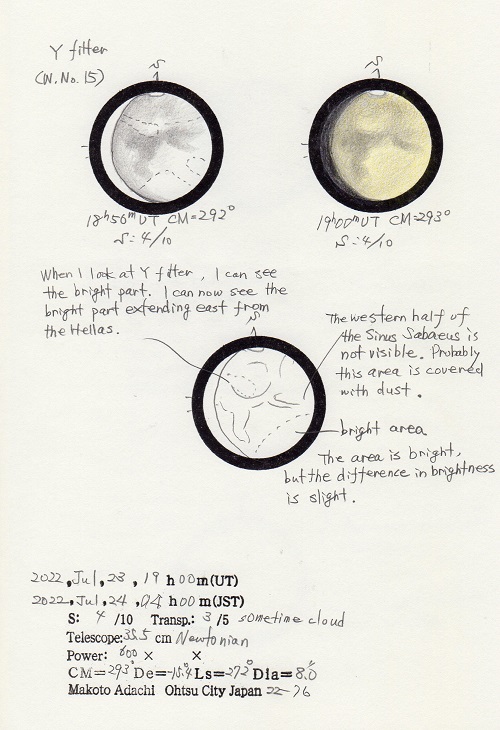 Y filter
(W.No.15)
S
S
18h50mUT CM=292°
S:4/10
19h00mUT CM=293°
S:4/10
When I look at Y filter, I can see
the bright part. I can now see the
bright part extending east from
the Hellas.
S
The western half of
the Sinus Sabaeus is
not visible. Probably
this area is covered
with dust.
bright area
The area is bright,
but the difference in brightness
is slight.
2022, Jul, 23, 19 h00m(UT)
2022, Jul, 24, 04 h00m(JST)
S: 4 /10 Transp.: 3 /5 sometime cloud
Telescope:35.5 cm Newtonian
Power: 600 × ×
CM=293°De=-15.4°Ls=272°Dia=8.0"
Makoto Adachi Ohtsu City Japan 22-76